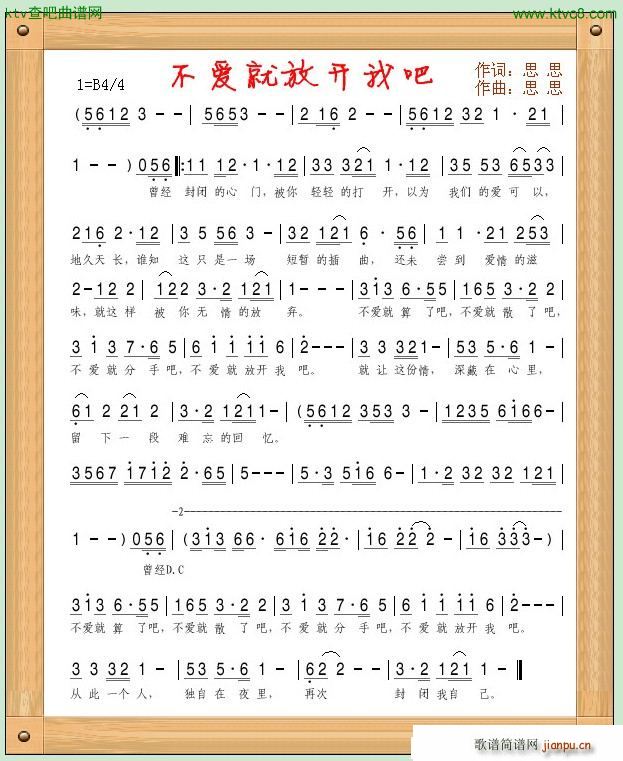 ktv查吧曲谱网
www.ktvc8.com
不爱就放开我吧
1=B4/4
作词：思 思
作曲：思 思
(5612 3 - - | 5653 - - | 2 16 2 - - | 5612 32 1 · 21 |
1 - - ) 056 ‖: 11 12 · 1 · 12 | 33 321 1 · 12 | 35 53 6533 |
曾经 封闭 的心 门，被你 轻轻 的打 开，以为 我们 的爱 可以，
216 2 · 12 | 3 5 56 3 - | 32 121 6 · 56 | 1 1 · 21 253 |
地久天 长，谁知 这 只 是一 场 短暂 的插 曲， 还未 尝 到 爱情 的滋
2 - 122 | 122 3 · 2 121 | 1 - - - | 313 6 · 55 | 165 3 · 2 2 |
味，就这样 被 你 无 情 的放 弃。 不爱就 算 了吧，不爱就 散 了 吧，
3 1 3 7 · 6 5 | 6 1 11 1 6 | 2 - - - | 3 3 321 - | 53 5 · 6 1 - |
不 爱 就 分 手 吧，不 爱 就 放开 我 吧。 就 让 这份情， 深藏 在 心 里，
61 2 221 2 | 3 · 2 1211 - | (5612 353 3 - | 1235 6166 - |
留 下 一 段 难 忘 的回 忆。
3567 1712 2 · 65 | 5 - - - | 5 · 3 516 6 - | 1 · 2 32 32 121 |
-2-
1 - - ) 056 | (313 66 · 616 22 · | 16 22 2 - | 16 333 - ) |
曾经D.C
313 6 · 55 | 165 3 · 2 2 | 3 1 3 7 · 6 5 | 6 1 11 1 6 | 2 - - - |
不爱就 算 了吧，不爱就 散 了 吧，不 爱 就 分 手 吧，不 爱 就 放开 我 吧。
3 3 32 1 - | 53 5 · 6 1 - | 62 2 - - | 3 · 2 121 1 - ‖
从 此 一个 人， 独自 在 夜 里， 再次 封 闭 我自 己。
歌谱简谱网
jianpu.cn